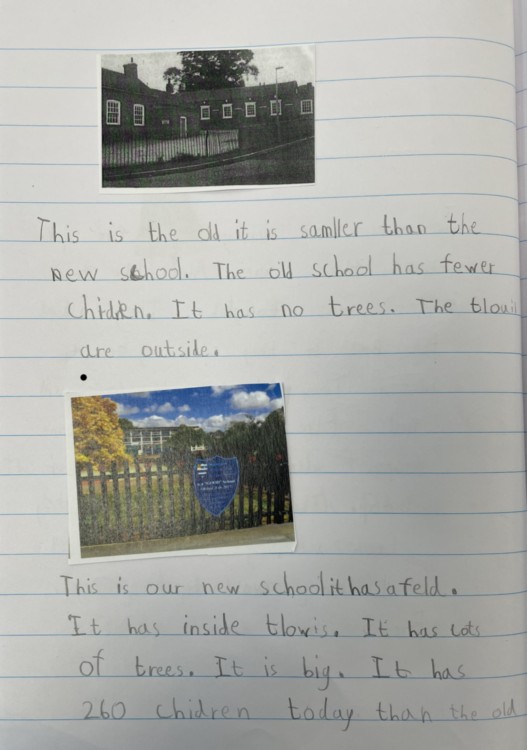 This is the old it is samller than the
new school. The old school has fewer
Chidren. It has no trees. The
are outside.
This is our new schoolithasafeld.
It has inside tlowis. It has Lots
of trees. It is big. It has
260 Chidren today than the old